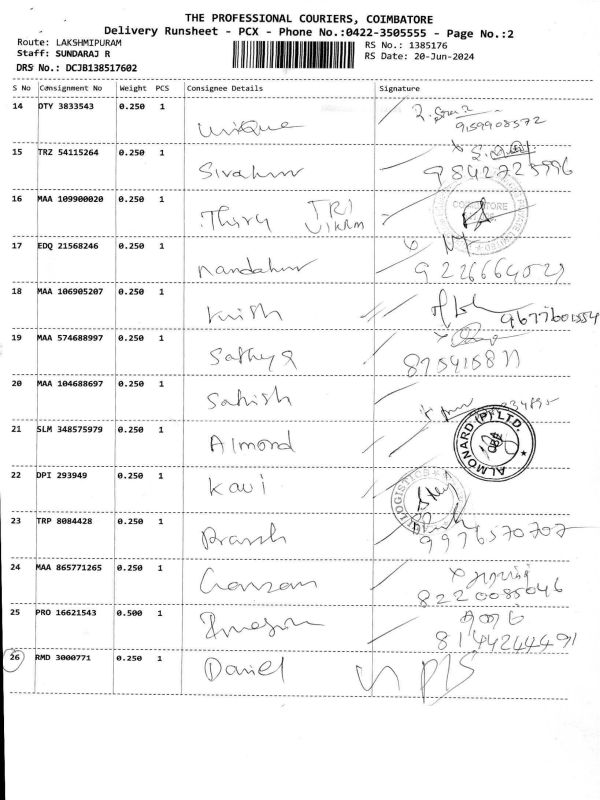 THE PROFESSIONAL COURIERS, COIMBATORE
Delivery Runsheet - PCX - Phone No.:0422-3505555 - Page No.:2
Route: LAKSHMIPURAM RS No.: 1385176
Staff: SUNDARAJ R RS Date: 20-Jun-2024
DRS No.: DCJB138517602
S No Consignment No Weight PCS Consignee Details Signature
14 DTY 3833543 0.250 1
Unique 9159908572
15 TRZ 54115264 0.250 1
Sivakumar 9842725996
16 MAA 109900020 0.250 1
Thiru TRI VIKRM
17 EDQ 21568246 0.250 1
Nandakumar 9226664029
18 MAA 106905207 0.250 1
Krish 9677601554
19 MAA 574688997 0.250 1
Sathya
20 MAA 104688697 0.250 1
Satish
21 SLM 348575979 0.250 1
Almond ALMONARD (P) LTD.
22 DPI 293949 0.250 1
Kavi LOGISTICS
23 TRP 8084428 0.250 1
9976570707
24 MAA 865771265 0.250 1
8220085046
25 PRO 16621543 0.500 1
8144244491
26 RMD 3000771 0.250 1
Daniel